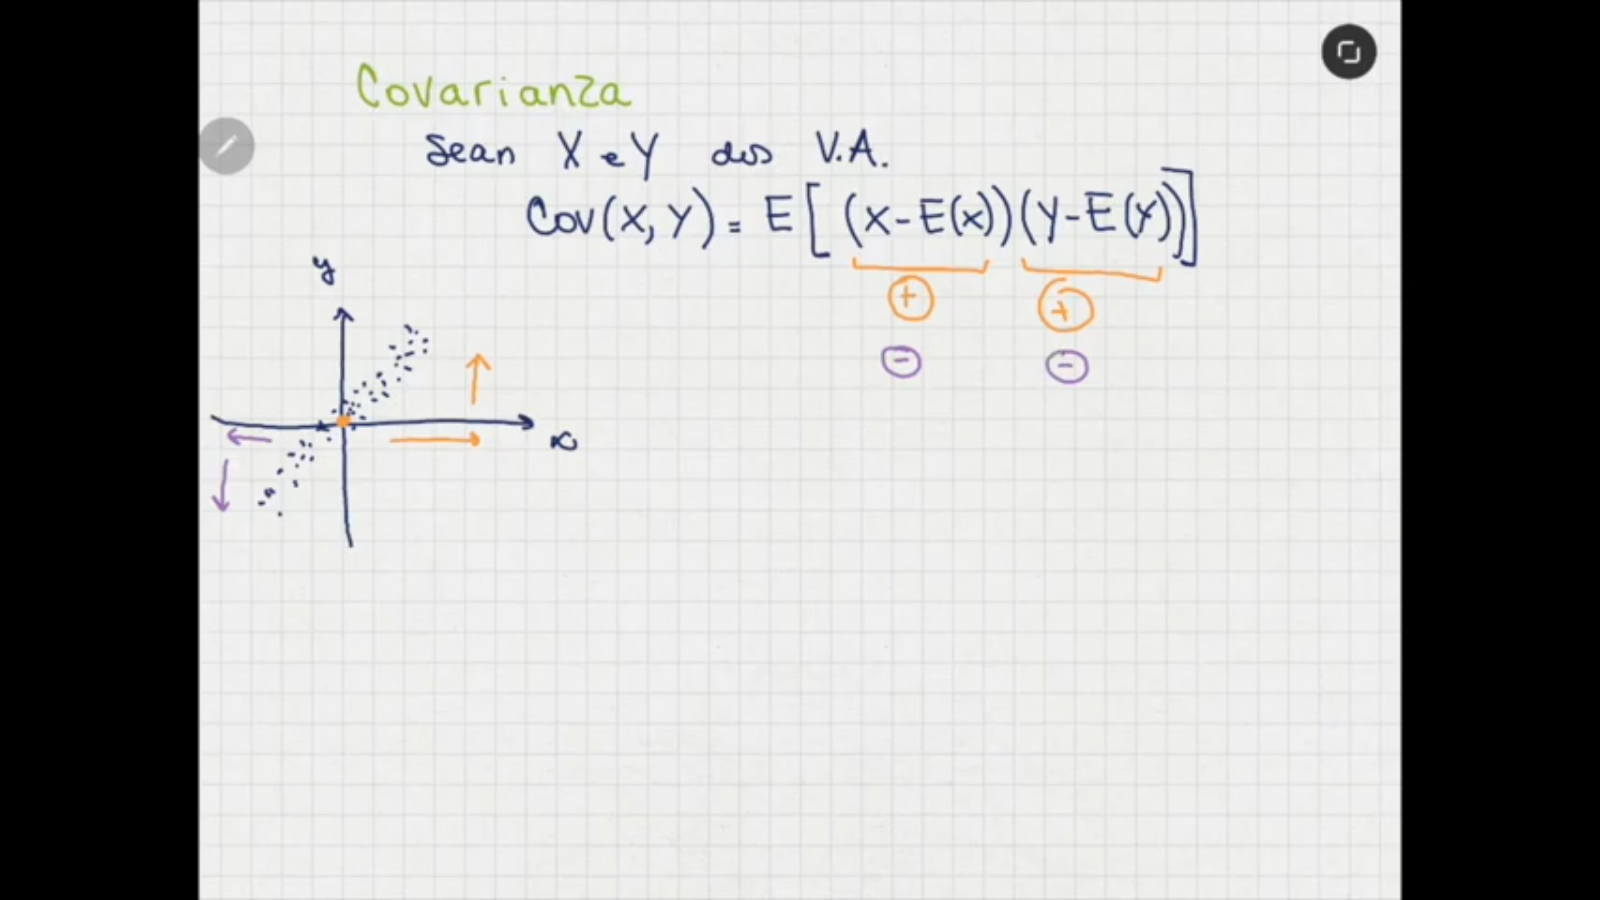 Covarianza
Sean X e Y dos V.A.
Cov(X, Y) = E[(X-E(x))(Y-E(Y))]
+ +
- -
y
x